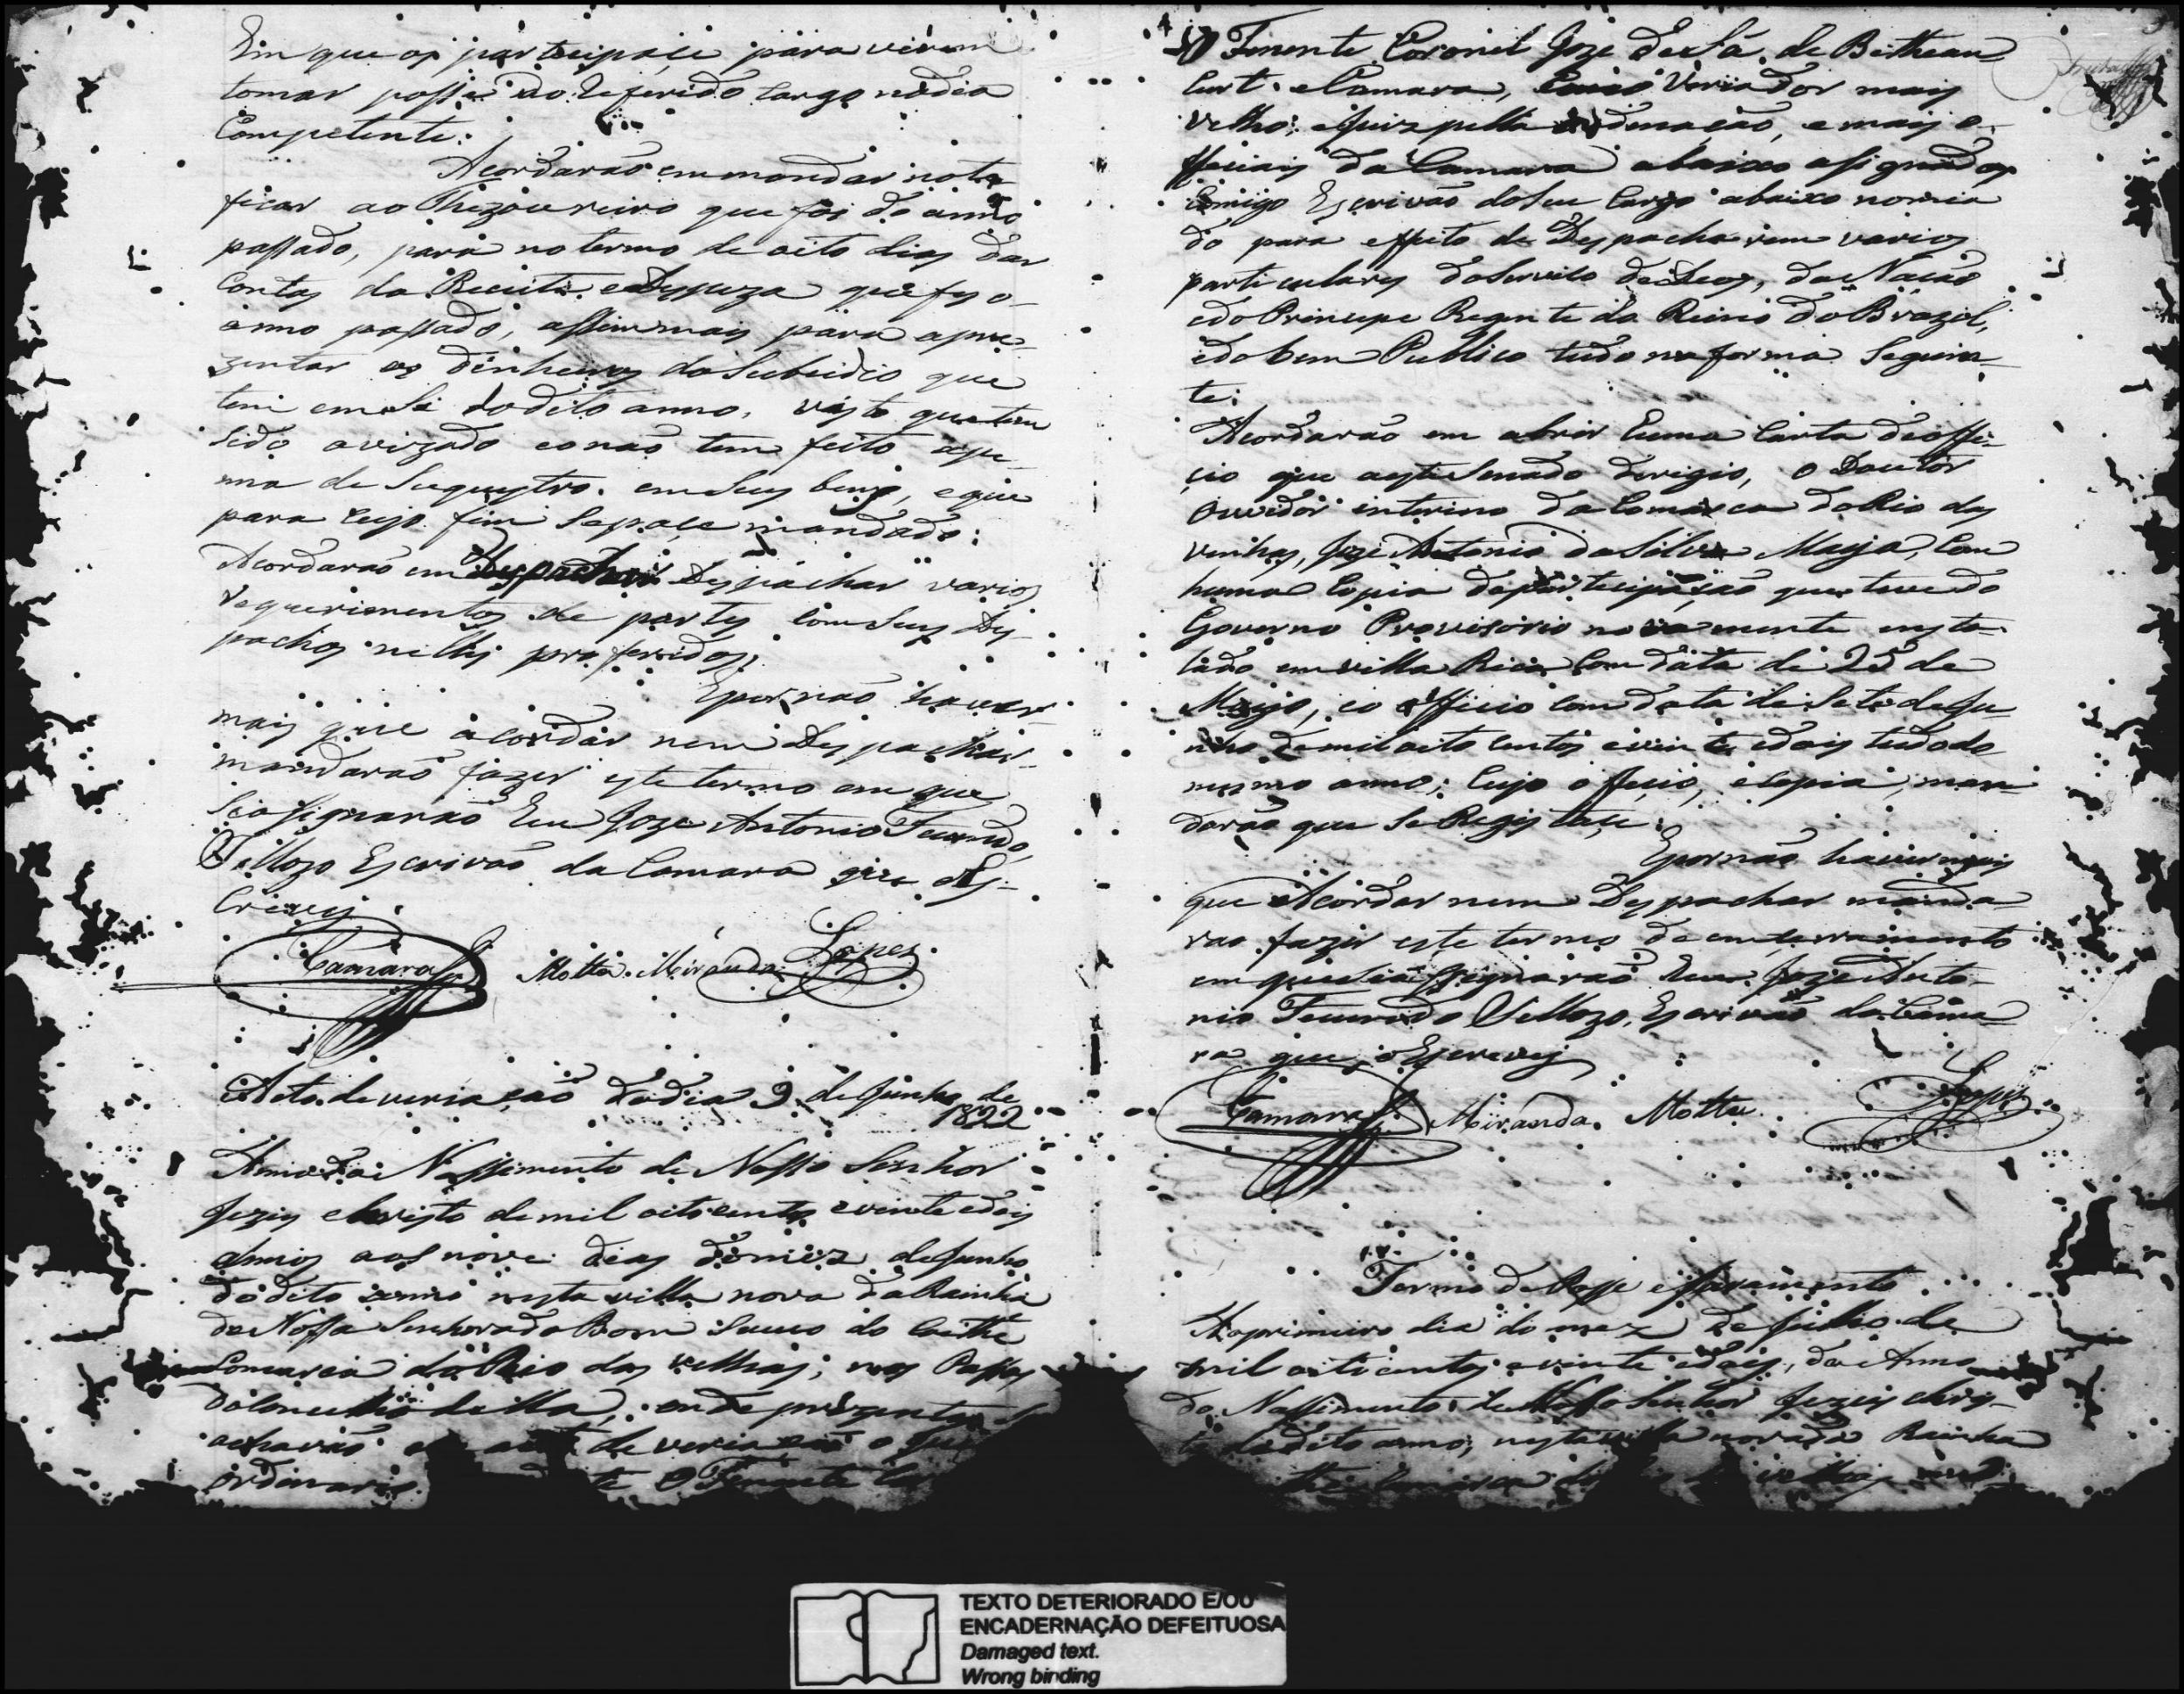 Em que os participáçe para virem
tomar posse do Referido Cargo nodia
Competente.
Acordaraõ emmandar noti
ficar ao Thezoureiro que foi do anno
passado, para notermo de oito dias dar
Contas da Receita eDespeza que fes o
anno passado, assimmais para apre-
zentar os dinheiros doSubsidio que
tem emSi doditto anno, visto que tem
Sido avizado eonaõ tem feito apu-
ma de Suquestro emSeus bens, eque
para cujo fim Sepaçe mandado.
Acordaraõ em Despachar Despachar varios
requerimentos de partes comSeus Des-
pachos nelles proferidos.
Epor naõ haver
mais que acordar nem Despachar
mandaraõ fazer este termo em que
Seasignaraõ Eu Joze Antonio Tecundo
Vellozo Escrivaõ da Camara que o Es-
Crevy
Camara Motta Miranda Lopes
Acto de veriaçaõ dodia 9 de Junho de
1822
Annodo Nassimento de Nosso Senhor
Jezus Christo demil oitocentos evinte edois
annos aos nove dias domez deJunho
do dito anno nesta villa nova da Rainha
de Nossa Senhora do Bom Suceso do Caithe
Comarca do Rio das velhas, nos Passos
doConcelho della, onde prezentes
achavaõ de veriaçaõ o Jui
ordinario te O Tenente
O Tenente Coronel Joze de Sá de Bithean
Curt. eCamara, Como Veriador mais
velho eJuis pella ordenaçaõ, e mais o-
fficiais daCamara abaixo assignados
Comigo Escrivaõ doSeu Cargo abaixo nomia
do para effeito de Despacharem varios
particulares doServico deDeos, da Nacaõ
edoPrincepe Regente do Reino do Brazil,
edobem Publico tudo na forma Seguin
te.
Acordaraõ em abrir huma Carta deoffi-
cio que aesteSenado derigio, o Doutor
Ouvidor interino daComarca doRio das
velhas, Joze Antonio daSilva Maya, Com
huma Copia departicipaçaõ que teve do
Governo Provisorio novamente insta-
lado em villa Rica Com data de 25 de
Mayo, eo officio Com data de Sete deJu-
nho demil oito centos evinte edois tudodo
mesmo anno; Cujo oficio, eCopia, man
daraõ que Se Registaçe.
Epornaõ haver mais
que Acordar nem Despachar manda
raõ fazer este termo de emcerramento
em queSeassignaraõ Eu Joze Anto-
nio Tecundo Vellozo, Escrivaõ da Cama
ra que oEscrevy
Camara Miranda. Motta Lopes
Termo dePosse eJuramento
Aoprimeiro dia do mez de Julho de
mil oito centos evinte edois, do Anno
do Nassimento de NossoSenhor Jezus Chris-
to doditto anno, nesta villa nova da Rainha
TEXTO DETERIORADO E/OU
ENCADERNAÇÃO DEFEITUOSA
Damaged text.
Wrong binding